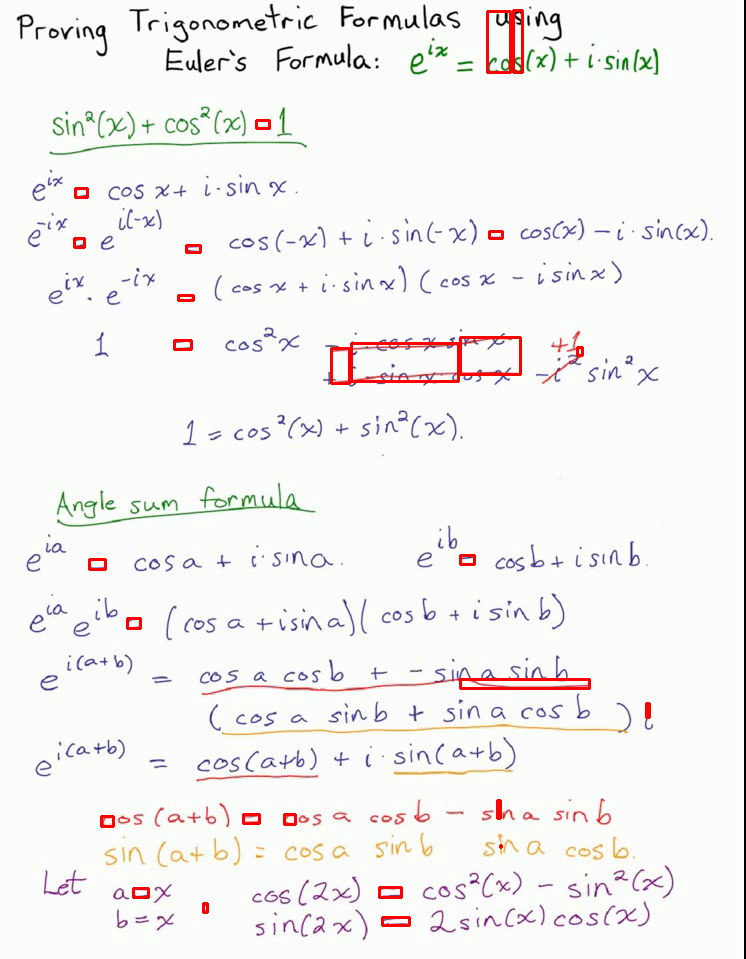 Proving Trigonometric Formulas using
Euler's Formula: e^{ix} = cos(x) + i·sin(x)
sin²(x) + cos²(x) = 1
e^{ix} = cos x + i·sin x.
e^{-ix} = e^{i(-x)} = cos(-x) + i·sin(-x) = cos(x) - i·sin(x).
e^{ix}·e^{-ix} = (cos x + i·sin x)(cos x - i sin x)
1 = cos²x - i·cos x sin x +1
+ i·sin x cos x - i² sin²x
1 = cos²(x) + sin²(x).
Angle sum formula
e^{ia} = cos a + i·sin a. e^{ib} = cos b + i sin b.
e^{ia} e^{ib} = (cos a + i sin a)(cos b + i sin b)
e^{i(a+b)} = cos a cos b + - sin a sin b
(cos a sin b + sin a cos b) i
e^{i(a+b)} = cos(a+b) + i·sin(a+b)
cos(a+b) = cos a cos b - sin a sin b
sin(a+b) = cos a sin b sin a cos b.
Let a = x cos(2x) = cos²(x) - sin²(x)
b = x sin(2x) = 2 sin(x) cos(x)